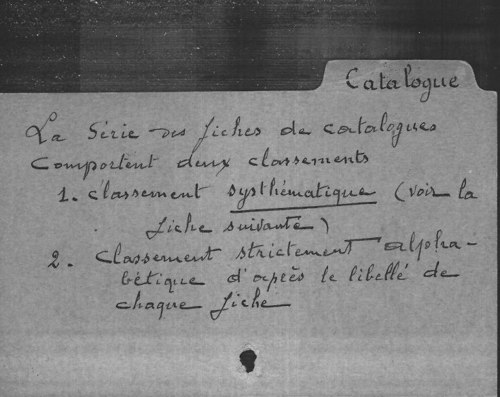 Catalogue
La Série des fiches de catalogues
comportent deux classements
1. classement systhématique (voir la
fiche suivante)
2. classement strictement alpha-
bétique d'après le libellé de
chaque fiche